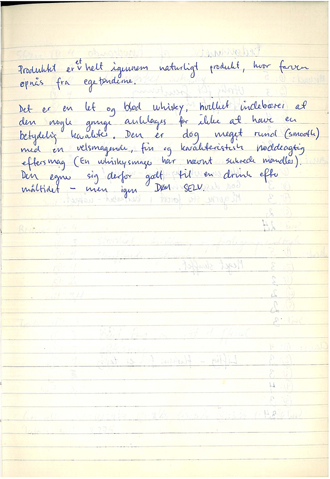 Produktet er et helt igennem naturligt produkt, hvor farven
opnås fra egetønderne.
Det er en let og blød whisky, hvilket indebærer at
den nogle gange anklages for ikke at have en
betydelig karakter. Den er dog meget rund (smooth)
med en velsmagende, fin og karakteristisk nøddeagtig
eftersmag (En whiskysmager har nævnt sukrede mandler).
Den egner sig derfor godt til en drink efter
måltidet - men igen DØM SELV.